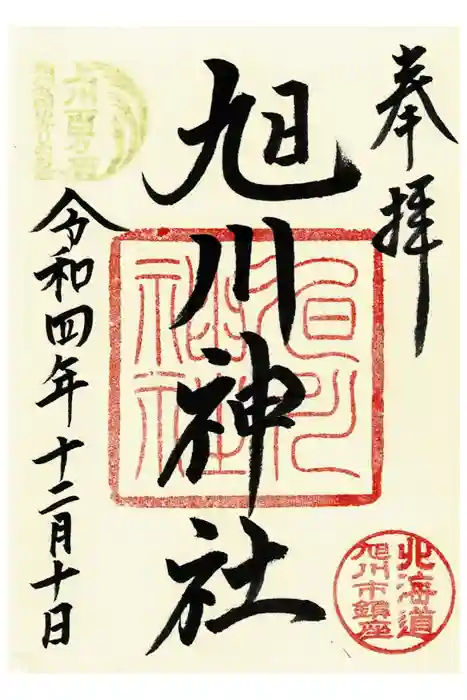 奉拝
旭川神社
旭川神社
北海道
旭川市鎮座
令和四年十二月十日